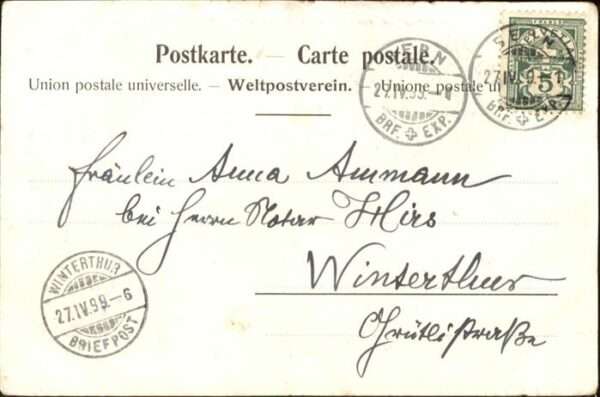 Postkarte. — Carte postale.
Union postale universelle. — Weltpostverein. — Unione postale un
BERN
27.IV.99.-1
BRF. EXP.
BERN
27.IV.99.-1
BRF. EXP.
5
Fräulein Anna Ammann
bei Herrn Notar Hirs
Winterthur
Grütlistraße
WINTERTHUR
27.IV.99.-6
BRIEFPOST